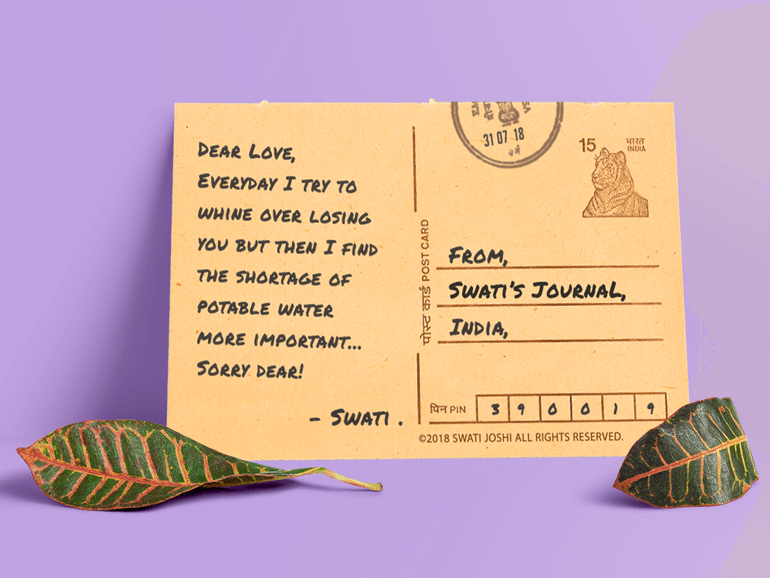 DEAR LOVE,
EVERYDAY I TRY TO
WHINE OVER LOSING
YOU BUT THEN I FIND
THE SHORTAGE OF
POTABLE WATER
MORE IMPORTANT...
SORRY DEAR!
- SWATI .
31 07 18
15 भारत
INDIA
पोस्ट कार्ड POST CARD
FROM,
SWATI'S JOURNAL,
INDIA,
पिन PIN 3 9 0 0 1 9
©2018 SWATI JOSHI ALL RIGHTS RESERVED.